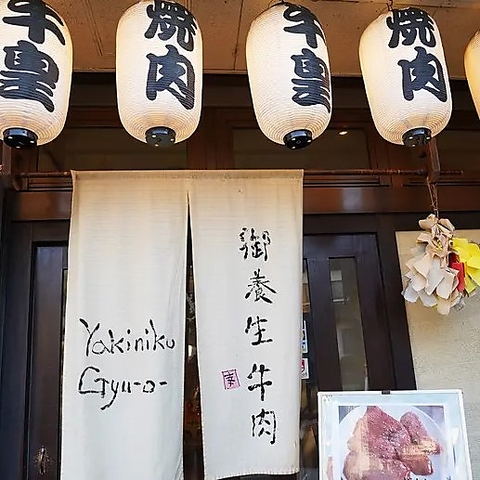 牛皇
焼肉
牛皇
焼肉
Yakiniku
Gyu-o-
御養生牛肉